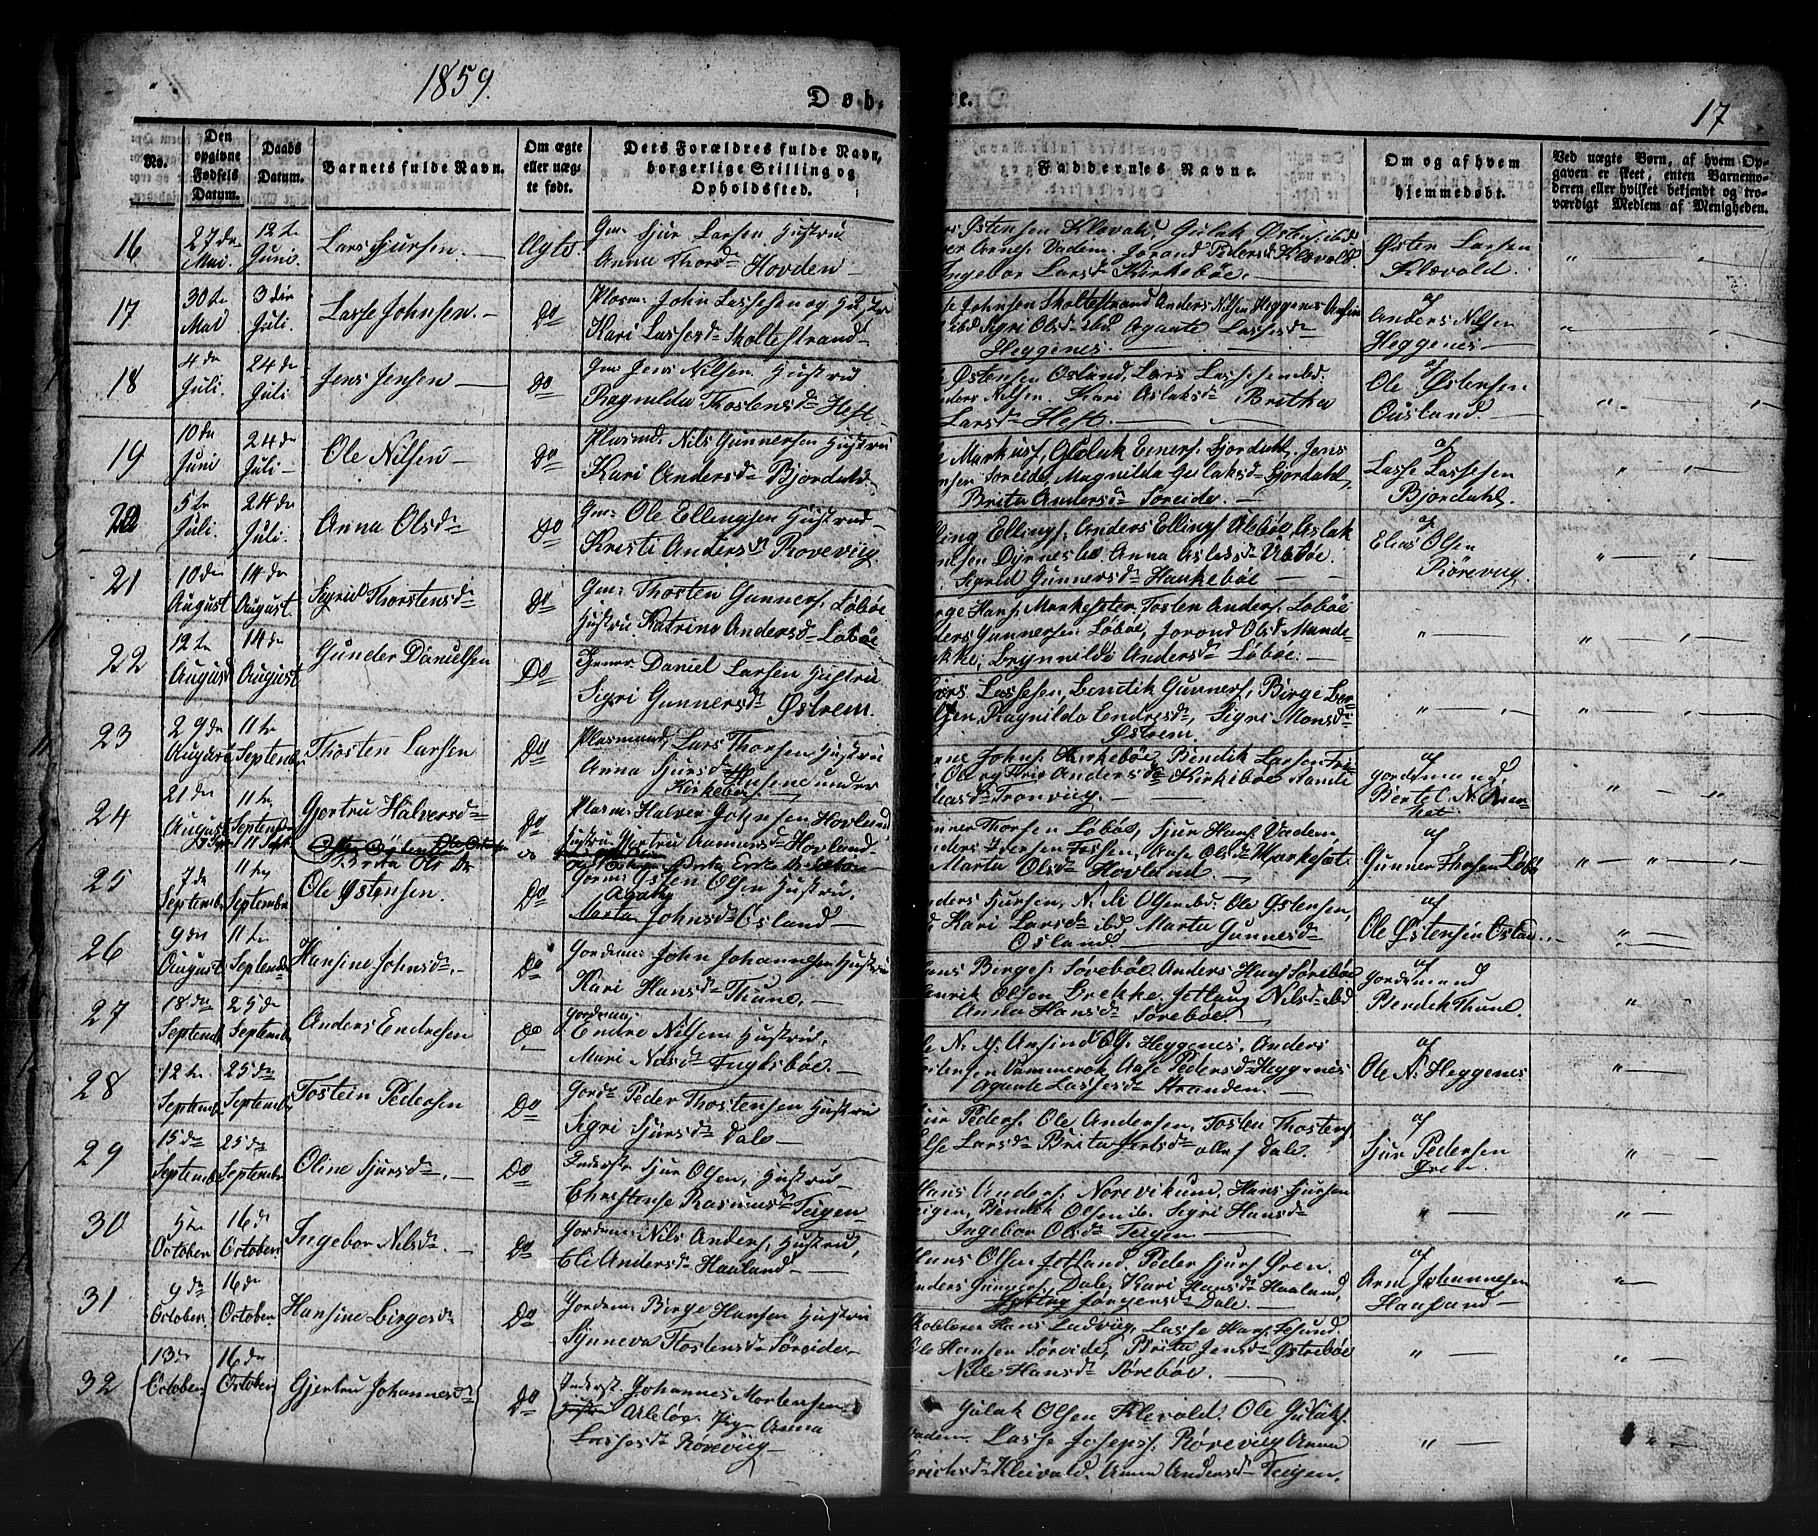 1859.
Døb
e.
17
No.
Den opgivne Fødsels Datum.
Daabs Datum.
Barnets fulde Navn.
Om ægte eller uægte født.
Dets Forældres fulde Navn, borgerlige Stilling og Opholdssted.
Faddernes Navne.
Om og af hvem hjemmedøbt.
Ved uægte Børn, af hvem Opgaven er skeet, enten Barnemoderen eller hvilket bekjendt og troværdigt Medlem af Menigheden.
16 27de Mai. 12te Juni. Lars Sjursen. Ægte. Gm: Sjur Larsen Hustru
Anna Thorsdr Hovden
Østensen Klævold, Gulak Østens. ibd
Arnes. Vadem. Jorand Pedersdr Klævold
Ingebor Larsdr Kirkebøe.
Østen Larsen
Klævold.
17 30te Mai 3die Juli. Lasse Johnsen. Do Plasm: John Lassesen og Hustru
Kari Lassesdr Skoltestrand
Johnsen Skoltestrand Anders Nilsen Heggenes
Sigri Olsdr ibd Agante Lassesdr
Heggenes.
af
Anders Nilsen
Heggenes
18 4de Juli 24de Juli Jens Jensen Do Gm: Jens Nilsen Hustru
Ragnilda Thostensdr Heft
Østensen Osland, Lars Lassesen ibd.
Anders Nilsen. Kari Aslaksdr Britha
Larsdr Heft.
af
Ole Østensen
Ousland
19 10de Juni 24de Juli Ole Nilsen Do Plasmd: Nils Gunnersen Hustru
Kari Andersdr Bjordahl
Markus. Gulak Einers. Bjordahl, Jens
Søreide, Magnilda Gulaksdr Bjordahl,
Brita Andersdr Søreide.
af
Lasse Lassesen
Bjordahl.
20 5te Juli. 24de Juli. Anna Olsdr Do Gm: Ole Ellingsen Hustru
Kristi Andersdr Røreviig
Elling Ellings. Anders Ellings. Aslak
Dyrnesbø. Anna Aslaksdr
Sigrid Gunnersdr Haukebøe
af
Elias Olsen
Rørevig.
21 10de August 14de August Sigrid Thorstensdr Do Gm: Thosten Gunners. Løbøe
Hustru Katrina Andersdr Løbøe
Birge Hans. Markeseter Tosten Anders. Løbøe
Anders Gunnersen Løbøe, Jorond Olsdr
Brynnilde Andersdr Løbøe.
22 12te August 14de August Gunder Danielsen Do Daniel Larsen Hustru
Sigri Gunnersdr Østrem.
Lars Lassesen, Bendik Gunners. Birge
Ragnilda Endresdr, Sigri Monsdr
Østrem.
23 29de August 11te September Thosten Larsen Do Plasmand Lars Thorsen Hustru
Anna Sjursdr Husene under
Kirkebøe
Johns. Kirkebøe, Bendik Lassen
Andersdr Kirkebøe
Tronviig.
af
gordsmand
Bertel N.
24 21de August 11te September Gjertru Halversdr Do Plasm: Halver Johnsen Hovland
Hustru Gjertru Aamunsdr Hovland
11 Sept Brita Ols Dr
Gunner Thorsen Løbøe, Sjur Hans. Vadem,
Iversen Fossen, Aase Olsdr Markeset
Marta Olsdr Hovland
af
Gunner Thorsen Løbø
25 7de September 11te September Ole Østensen. Do Østen Olsen Hustru,
Agathe
Marta Johnsdr Osland
Anders Sjursen, N. M. Olsen ibd. Ole Østensen,
Kari Larsdr ibd, Marta Gunnesdr
Osland
af
Ole Østensen Osland.
26 9de August 11te September Hansine Johnsdr. Do Gordsm: John Johannessen Hustru
Kari Hansdr Thune.
Hans Birges. Sørebøe Anders Hans. Sørebøe
Henrik Olsen Brekke. Nilsdr ibd
Anna Hansdr Sørebøe.
af
gordsmand
Bendik Thune.
27 18de September 25de September Anders Endresen Do Gordsm:
Endre Nilsen Hustru
Mari Nilsdr Fuglsbøe.
N. M. Ansind Ol. Heggenes. Anders
Vammerok, Aase Pedersdr Heggenes
Agante Lassesdr Stranden.
af
Ole N. Heggenes
28 12te September 25de September Tostein Pedersen Do Gordm Peder Thostensen Hustru
Sigri Sjursdr Dale
Sjur Peders. Ole Andersen, Tosten Thostens.
Larsdr Brita Jertsdr alle f Dale.
af
Sjur Pedersen
Øren
29 15de September 25de September Oline Sjursdr. Do Inderste Sjur Olsen, Hustru
Christense Rasmusdr Teigen
Hans Anders. Norevikum, Hans Sjursen
Teigen, Bendik Olsen ib. Sigri Hansdr
Ingebor Olsdr Teigen
30 5te October 16de October Ingebor Nilsdr. Do Gordsm: Nils Anders. Hustru,
Eli Andersdr Haaland
Hans Olsen Jetland. Peder Sjurs. Øren.
Anders Dale, Kari Hansdr Haaland,
Jørgensdr Dale.
af
Arn Johannesen
Haaland
31 9de October 16de October Hansine Birgesdr Do Gordsm: Birge Hansen Hustru
Synneva Thostensdr Søreide
Hans Ladvig, Lasse Hans.
Ole Hansen Søreide, Brita Jensdr Østrebøe
Nille Hansdr Sørebøe.
32 13de October 16de October Gjertru Johannesdr Do Inderst Johannes Mortensen
Anna
Lassesdr Rørevüg
Gulak Olsen Klevold. Ole Gulaks.
Vadem. Lasse Joseps. Rørevüg Anna
Erichsdr Kleivold. Anna Andersdr Teigen.